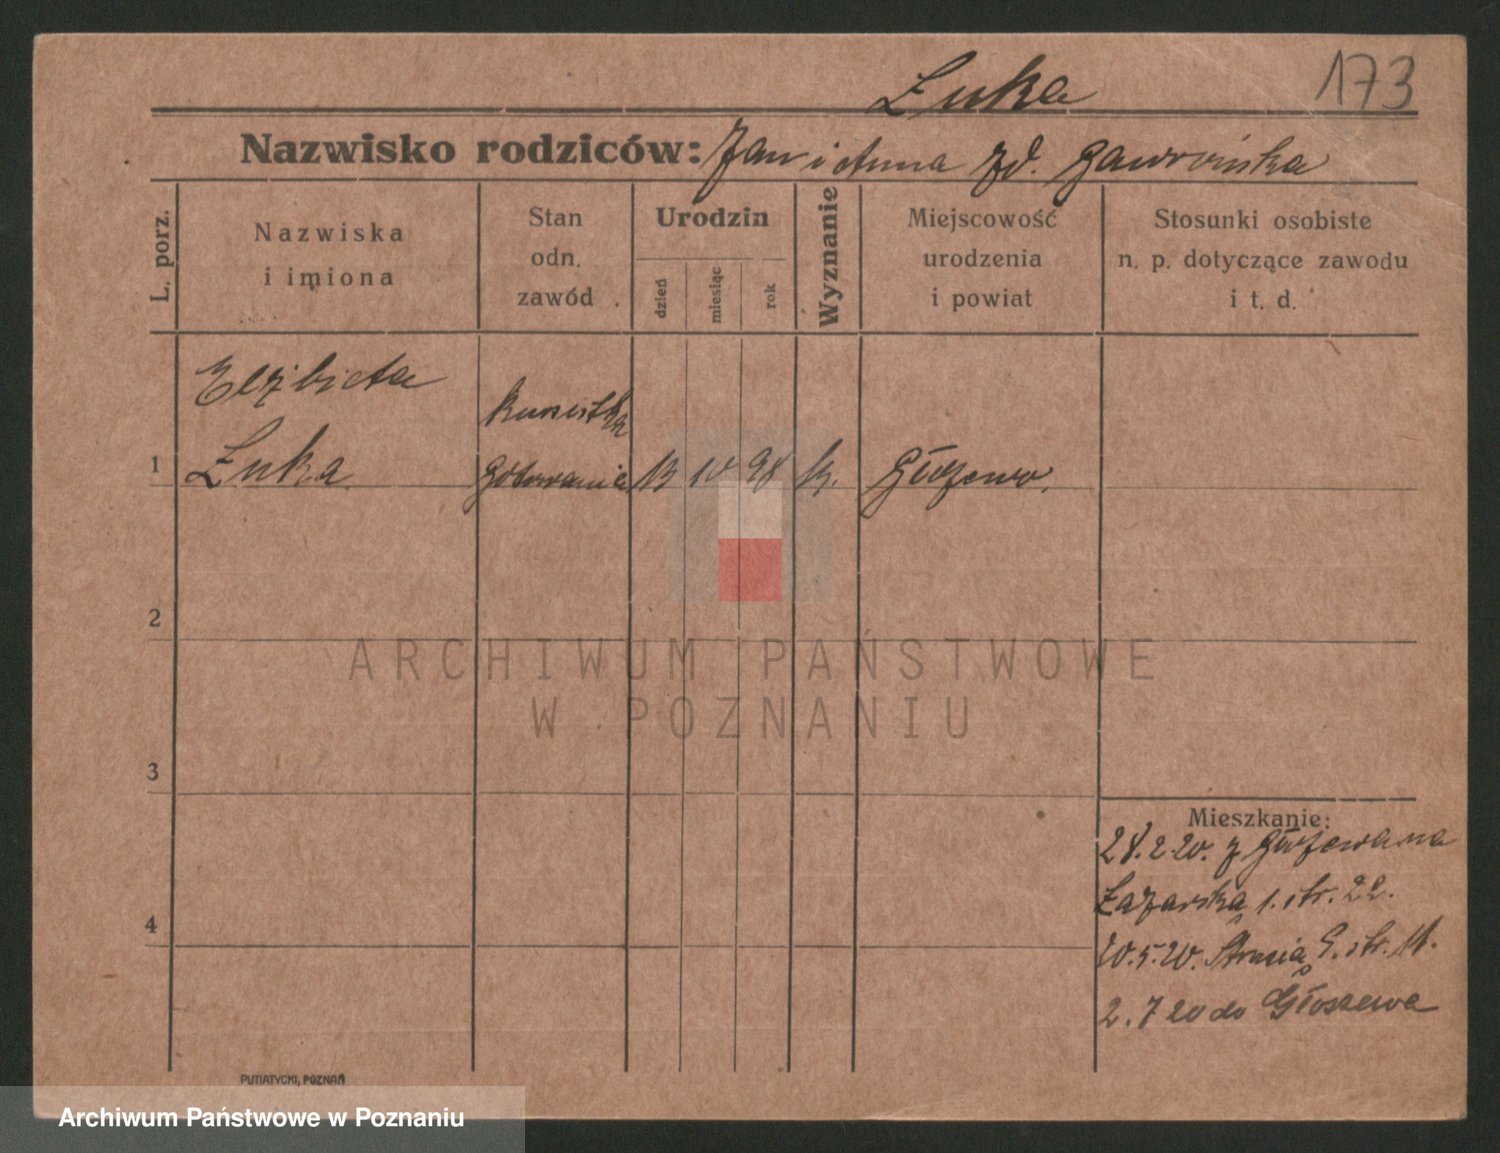 Łuka
173
Nazwisko rodziców: Jan i Anna zd. Gawrońska
L. porz.
Nazwiska
i imiona
Stan
odn.
zawód
Urodzin
dzień
miesiąc
rok
Wyznanie
Miejscowość
urodzenia
i powiat
Stosunki osobiste
n. p. dotyczące zawodu
i t. d.
Elżbieta
Łuka
kursistka
gotowania
13 10 98 k. Głożewo.
1
2
3
4
Mieszkanie:
28.2.20. z Głożewa na
Łazarska 1. str. 22.
20.5.20. Strusia 9. str. 11.
2.7 20 do Głoszewa
PUTIATYCKI, POZNAŃ
ARCHIWUM PAŃSTWOWE
W POZNANIU
Archiwum Państwowe w Poznaniu